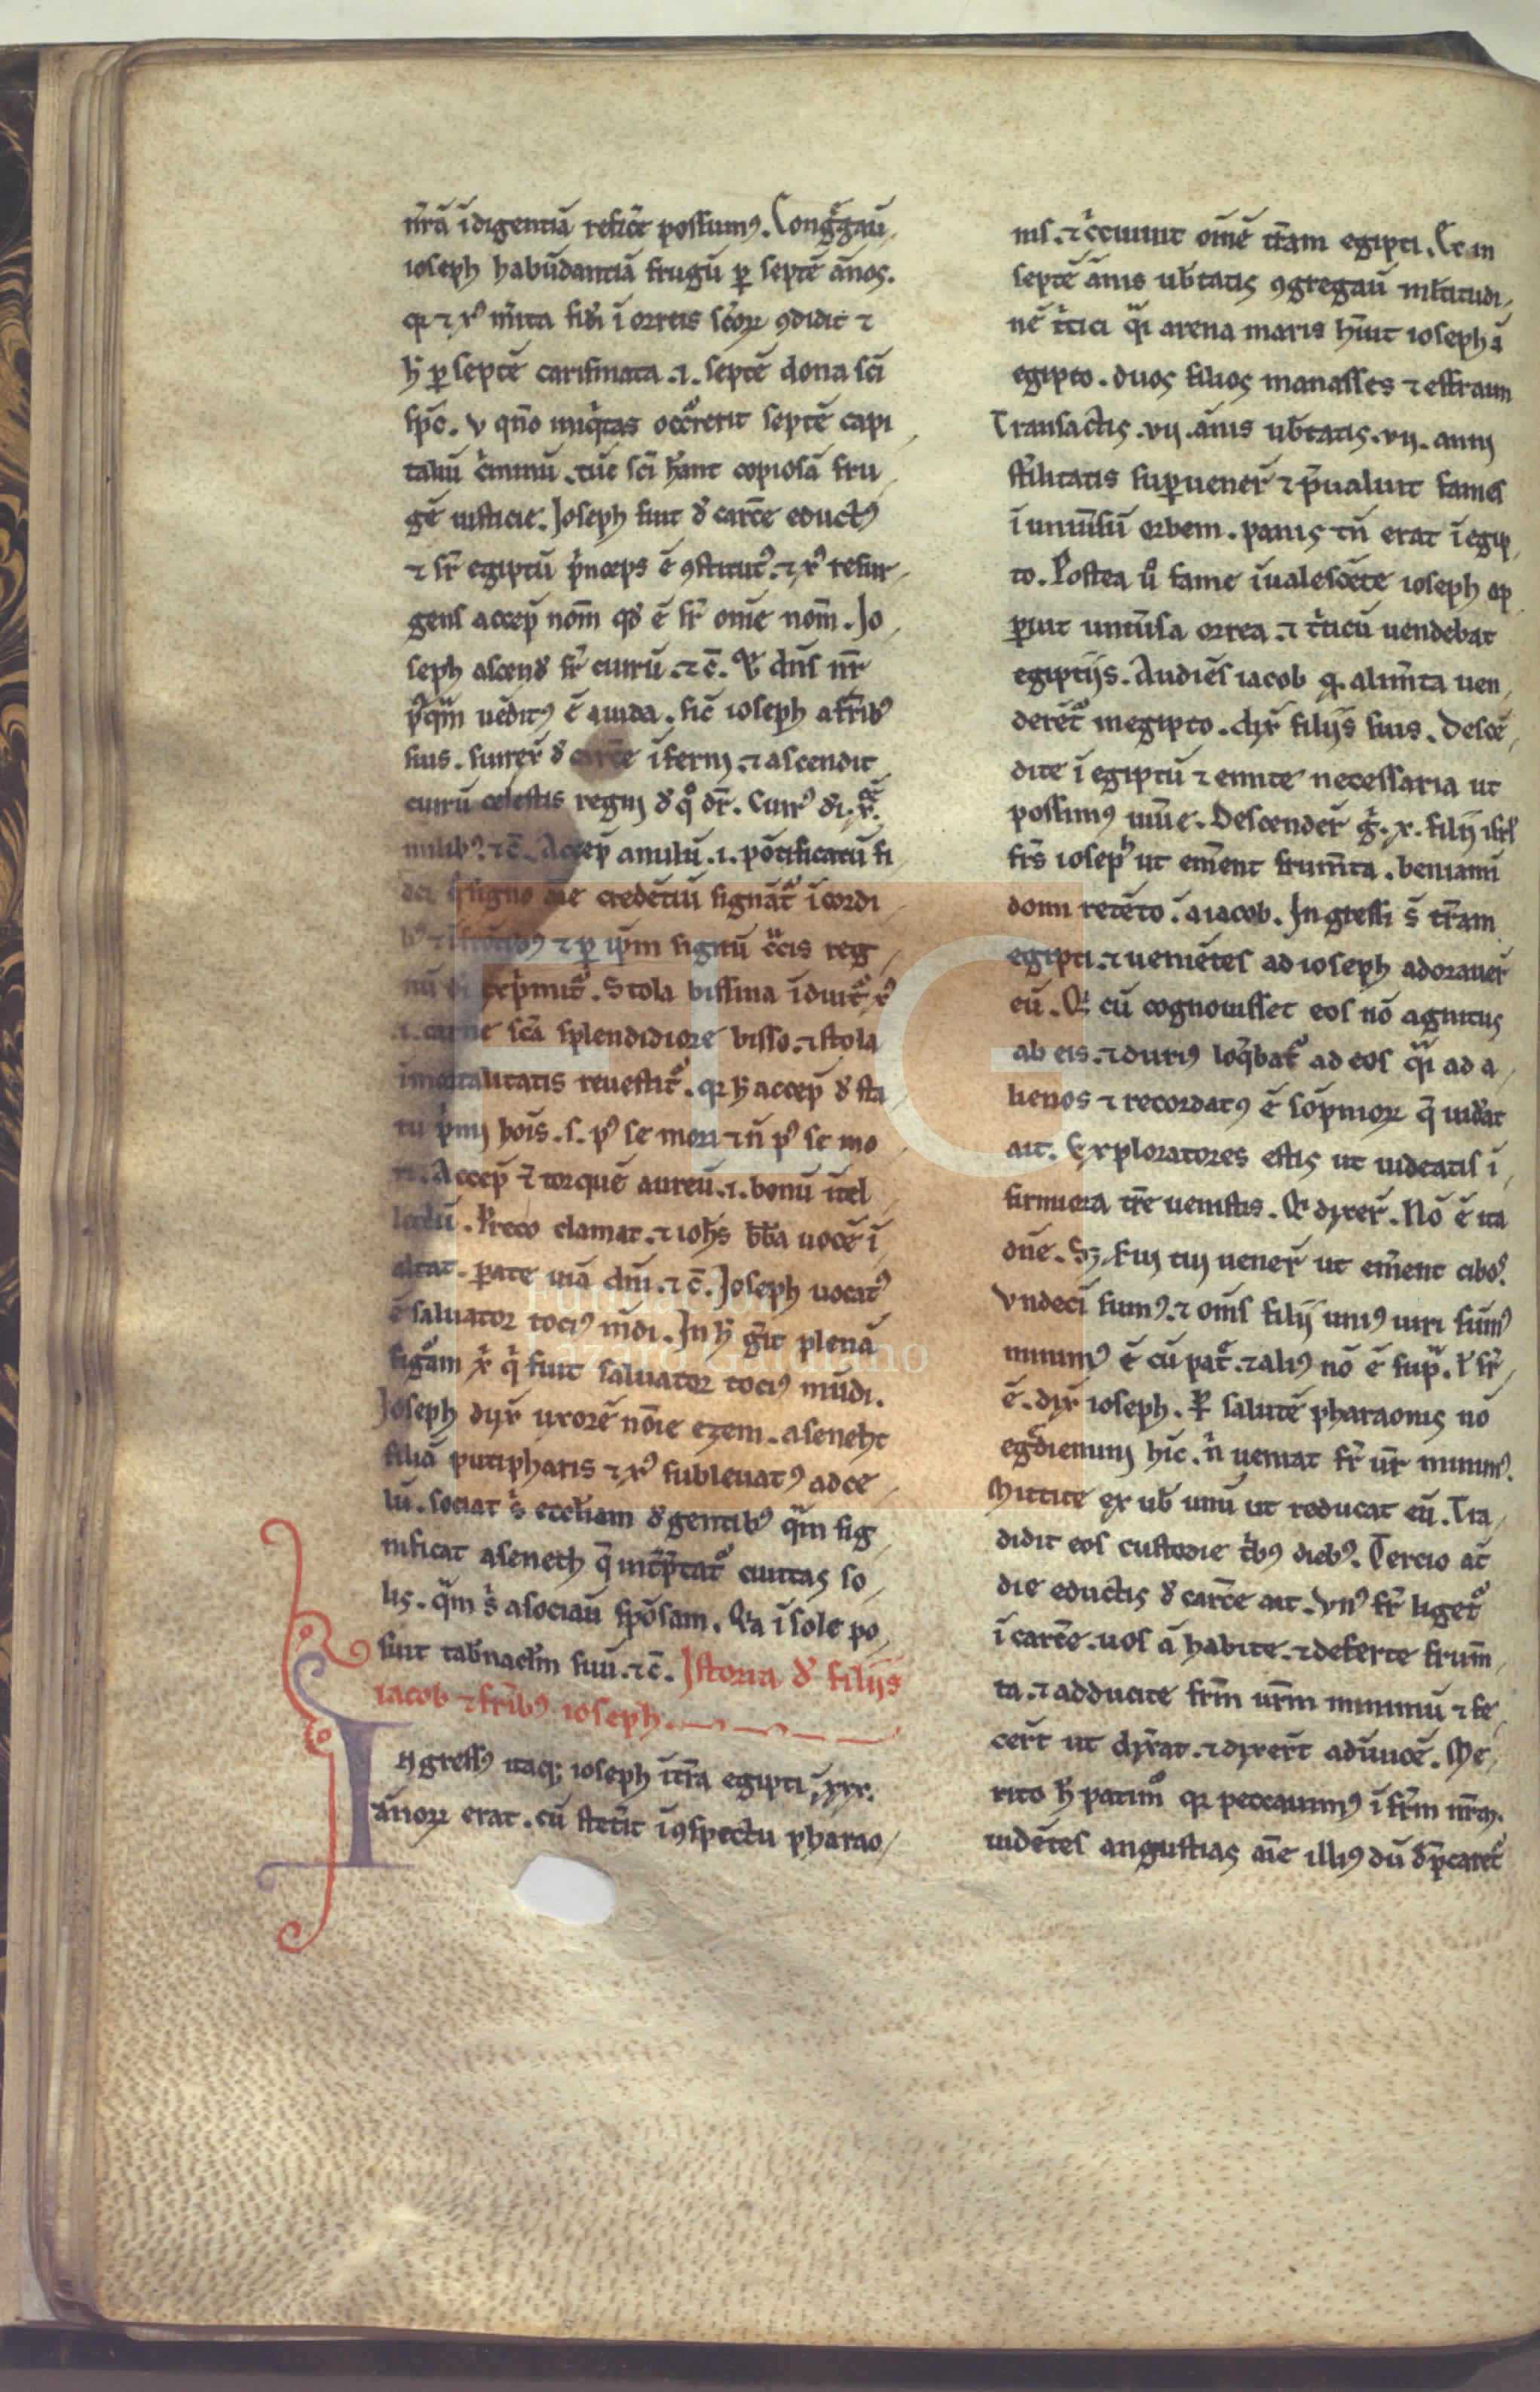 nr̄ā īdigentiā reficē possumꝰ. Congͣgau̅
ioseph habūdantiā frugū ꝑ septē ānos.
qi ⁊ xꝰ mīta fidi ī orreis scōꝝ ꝯdidit ⁊
h̄ ꝑ septē carismata .i. septē dona sci
sp̄c. v qn̄o iniqͥtas occͦrerit septē capi
taliū cͥminū. tūc sci h̄ant copiosā fru
gē iusticie. Joseph fuit ꝺ̄ carc̄e eductꝰ
⁊ sr̄ egiptū pͥnceps ē ꝯstitutꝰ. ⁊ xꝰ resur
gens accep̄ nom̄ qd̄ ē sr̄ om̄e nom̄. Jo
seph ascenꝺ̄ sr̄ currū. ⁊c̄. Xͥ dn̄s nr̄
pͥqͣm uēditꝰ ē a iuda. sic̄ ioseph a fr̄ibꝰ
suis. surrex̄ ꝺ̄ carc̄e īferni. ⁊ ascendit
currū celestis regni ꝺ̄ qͦ dr̄. Currꝰ di. x.
milibꝰ. ⁊c̄. Accep̄ anulū .i. pōtificatū fi
dei qͦ signo aīe credētiū signāt̄ͦ ī cordi
bꝰ ⁊ frōtibꝰ ⁊ ꝑ ip̄m signū cͣcis reg
nū di exp̄mit̄ͦ. Stola bissina īduit̄ͦ xͥ
.i. carne scā splendidiore bisso. ⁊ stola
īmortalitatis reuestit̄ͦ. qꝛ h̄ accep̄ ꝺ̄ sta
tu pͥmi hoīs. s. pꝰ se mori ⁊ n̄ pꝰ se mo
ri. Accep̄ ⁊ torquē aureū .i. bonū ītel
lectū. Preco clamat. ⁊ ioh̄s bb̄a uocē ī
altat. parate uiā dn̄i. ⁊c̄. Joseph uocatꝰ
ē saluator tociꝰ mūdi. In h̄ gīt plenā
figͦam xͥ qͥ fuit saluator tociꝰ mūdi.
Joseph dux̄ uxorē noīe ezem. aseneht
filiā putipharis ⁊ xꝰ subleuatꝰ ad ce
lū. sociat sͥ eccl̄iam ꝺ̄ gentibꝰ qͣm sig
nificat aseneth q̄ int̄p̄tat̄ͦ ciuitas so
lis. qͣm sͥ asociau̅ spōsam. Qͥa ī sole po
suit tab̄nacl̄m suū. ⁊c̄. Jstoria ꝺ̄ filiis
iacob ⁊ fr̄ibꝰ ioseph.
Ingressꝰ itaq; ioseph ītr̄a egipti .xxx.
ānoꝝ erat. cū stetit̄ ī ꝯspectu pharao
nis. ⁊ cͥcuiuit om̄ē tr̄am egipti. Et in
septē ānis ub̄tatis ꝯgregau̅ ml̄titudi
nē tͥtici qͣi arena maris h̄uit ioseph ī
egipto. duos filios manasses ⁊ effraim
Transactis .vii. ānis ub̄tatis. vii. anni
st̄ilitatis suꝑuener̄ ⁊ p̄ualuit fames
ī uniu̅sū orbem. panis tn̄ erat ī egip
to. Postea u̅ͦ fame īualescēte ioseph ap
peruit uniu̅sa orrea. ⁊ tͥticū uendebat
egiptiis. Audiēs iacob qꝫ alim̄ta uen
deret̄ͦ in egipto. dix̄ filiis suis. Descē
dite ī egiptū ⁊ emite necessaria ut
possimꝰ uiu̅e. Descender̄ gͥ. x. filii isrl̄
frs̄ iosep̄ʰ ut em̄ent frum̄ta. beniamī
domi retēto. a iacob. Ingressi s̄ tr̄am
egipti. ⁊ ueniētes ad ioseph adorauer̄
eū. Qͥ cū cognouisset eos nō agnitus
ab eis. ⁊ duriꝰ loqͤbat̄ͦ ad eos qͣi ad a
lienos ⁊ recordatꝰ ē sop̄nioꝝ q̄ uid̄at
ait. Exploratores estis ut uideatis ī
firmiora tr̄e uenistis. Qͥ dixer̄. Nō ē ita
dn̄e. Sꝫ s̄ui tui uener̄ ut em̄ent cibos.
Vndecī sumꝰ. ⁊ om̄s filii uniꝰ uiri sumꝰ
minimꝰ ē cū pat̄ͦ. ⁊ aliꝰ nō ē supͣ. Vͥ fr̄
ē. dix̄ ioseph. P̄ salutē pharaonis nō
egͦdiemini hic. n̄ ueniat fr̄ ur̄ minimꝰ.
Mittite ex ub̄ unū ut reducat eū. Tra
didit eos custodie tͥbꝰ diebꝰ. Tercio at̄
die eductis ꝺ̄ carc̄e ait. Vnꝰ fr̄ liget̄ͦ
ī carc̄e. uos ā habite. ⁊ deferte frum̄
ta. ⁊ adducite frm̄ urm̄ minimū ⁊ fe
cer̄t ut dix̄at. ⁊ dixer̄t aduīcē. Me
rito h̄ patim̄ͦ qꝛ peccauimꝰ ī frm̄ nrm̄.
uidētes angustias aīe illiꝰ dū ꝺ̄p̄caret̄ͦ
Fundación
Lázaro Galdiano